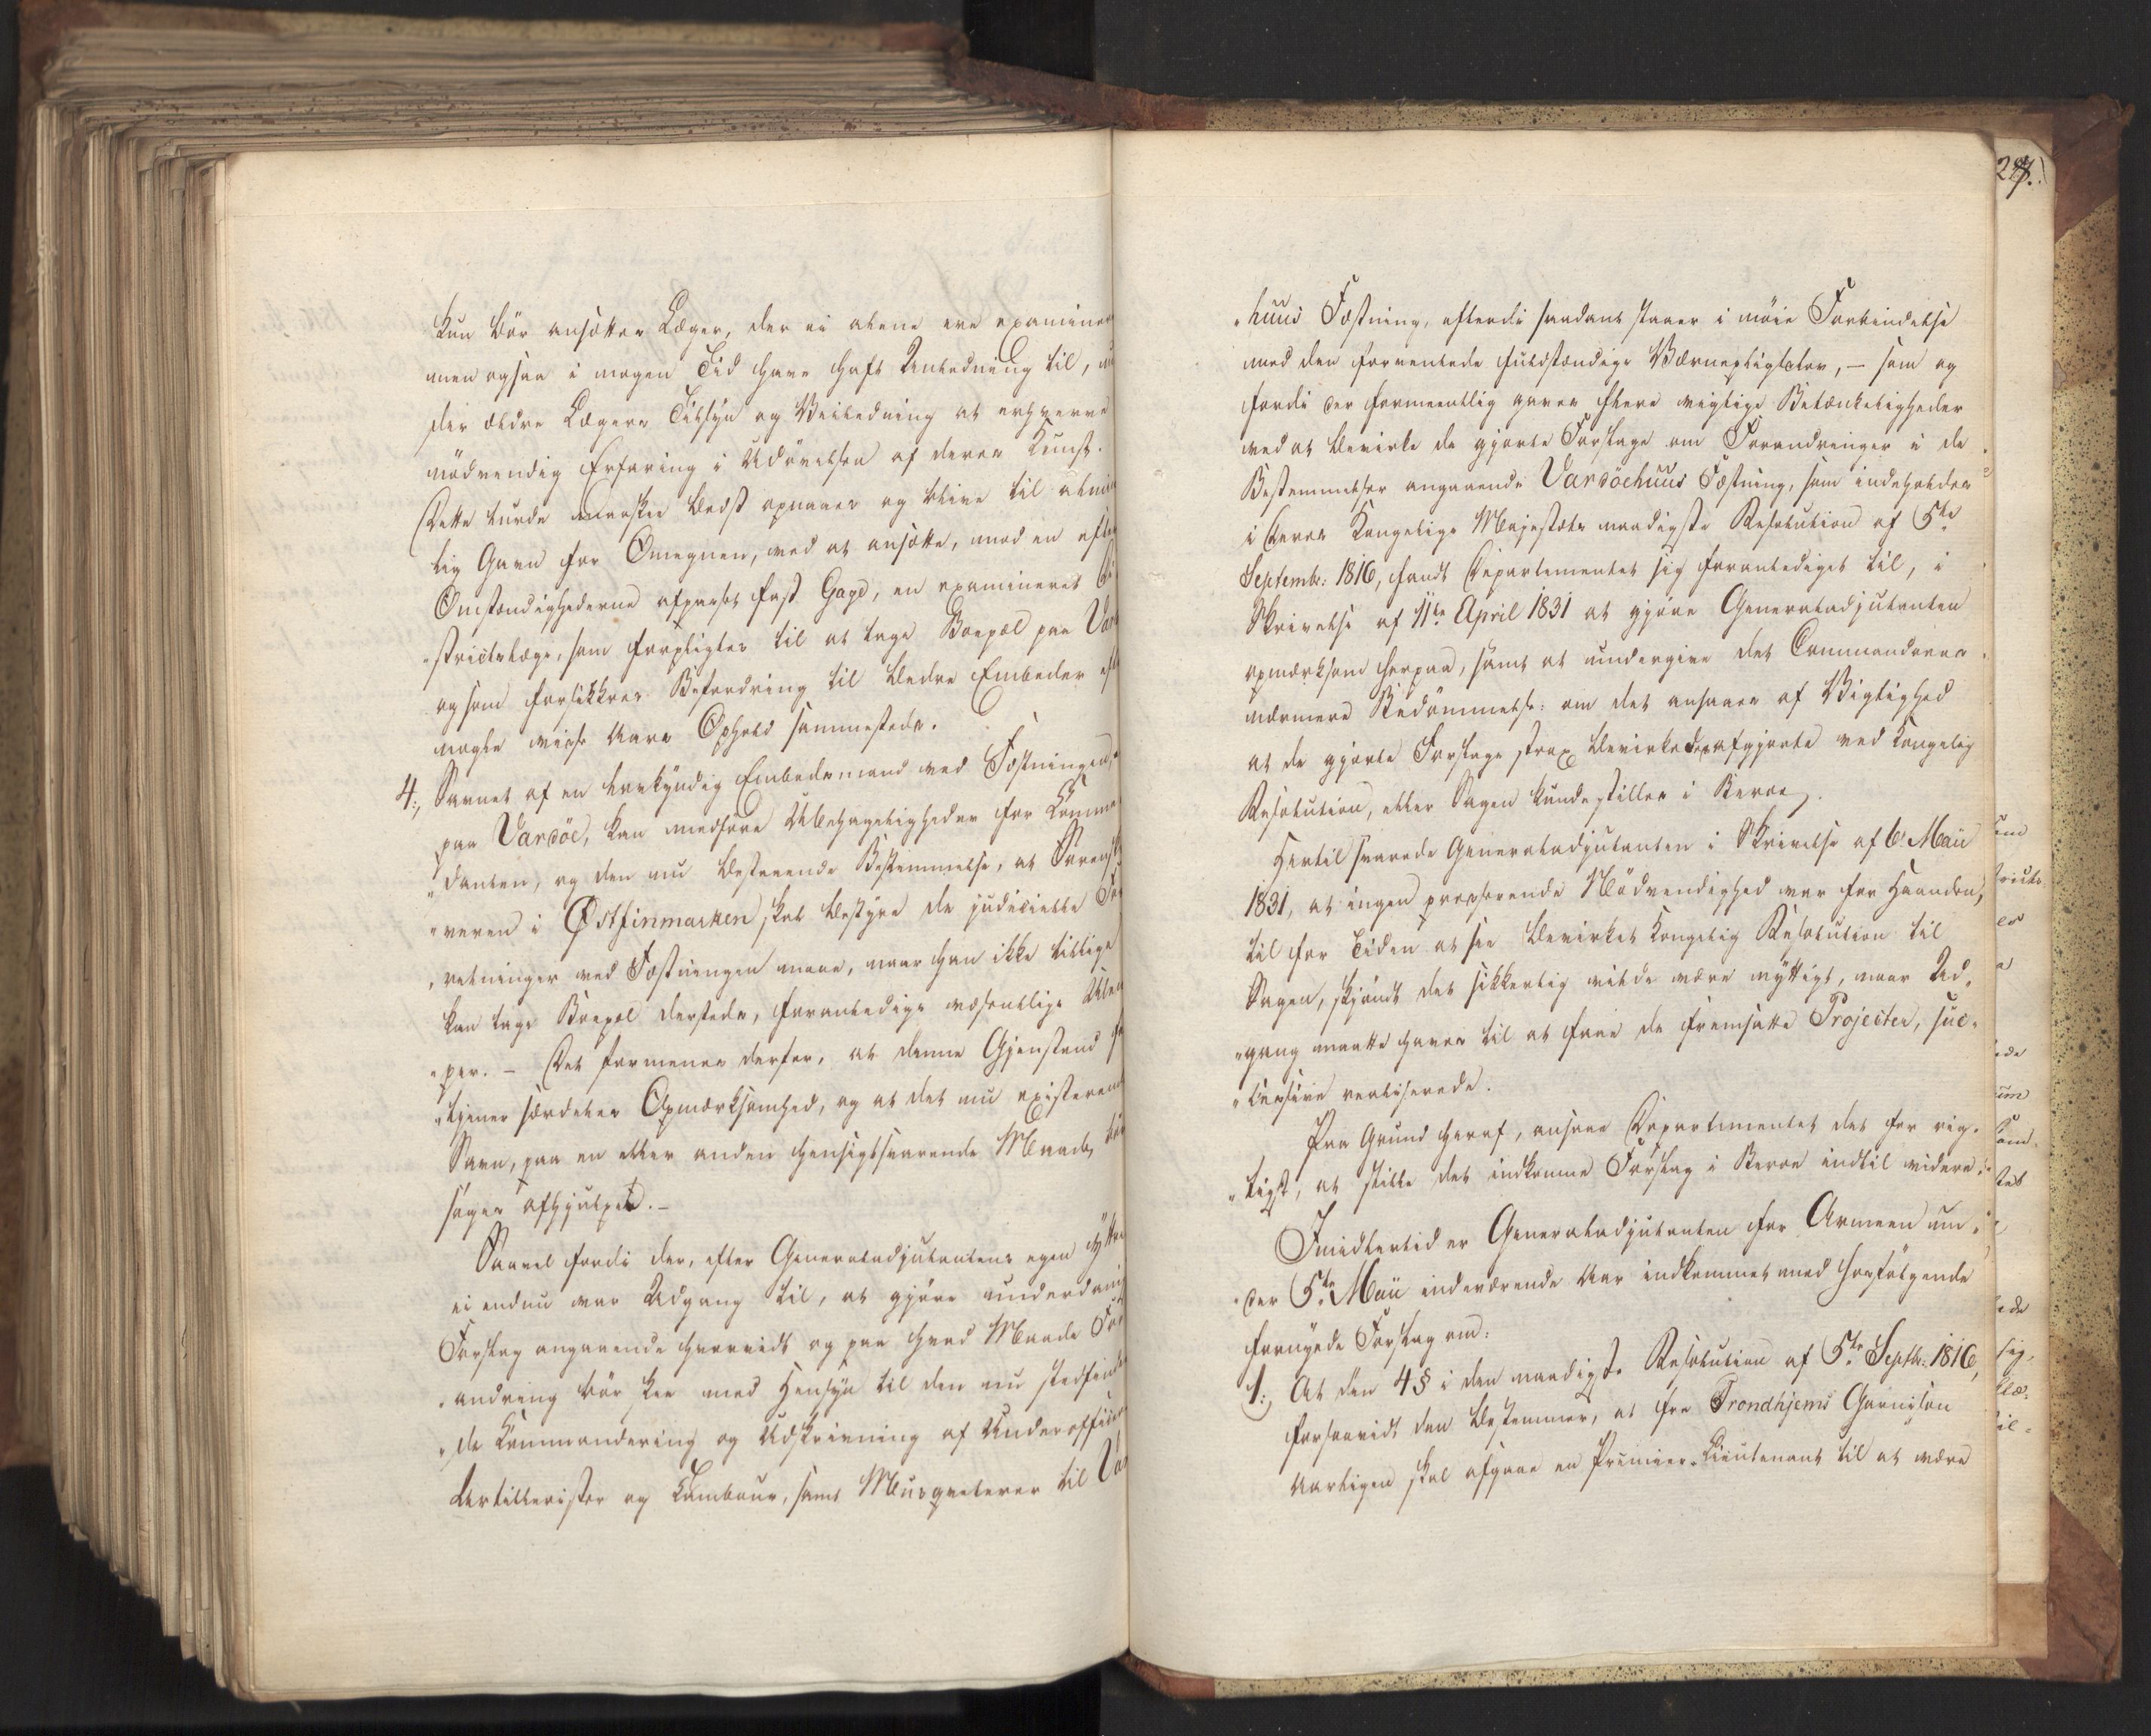 kun bör ansættes Læger, der ei alene ere examinere
men ogsaa i nogen Tid have haft Anledning til, un
der ældre Lægers Tilsyn og Veiledning at erhverve
nödvendig Erfaring i Udövelsen af deres Kunst.
Dette turde maaskee bedst opnaaes og blive til almin
lig Gavn for Omegnen, ved at ansætte, mod en efter
Omstændighederne afpasset fast Gage, en examineret Di
"strictslæge, som forpligtes til at tage Boepæl paa Var
og som forsikkres Befordring til bedre Embeder eft
nogle visse Aars Ophold sammesteds.
4., Savnet af en lovkyndig Embedsmand ved Fæstningen,
paa Vardöe, kan medföre Ubehageligheder for Comman
"danten, og den nu bestaaende Bestemmelse, at Sorenskr
"veren i Østfinmarken skal bestyre de judicielle For
"retninger ved Fæstningen maae, naar han ikke tillige
kan tage Boepæl dersteds, foranledige væsentlige Ulem
"per. – Det formenes derfor, at denne Gjenstand for
"tjener særdeles Opmærksomhed, og at det nu existerende
Savn, paa en eller anden hensigtssvarende Maade, bör
söges afhjulpet. –
Saavel fordi der, efter Generaladjutantens egen Yttri
ei endnu var Adgang til, at gjöre underdanig
Forslag angaaende hvorvidt og paa hvad Maade For
"andring bör skee med Hensyn til den nu stedfinden
"de Kommandering og Udskrivning af Underofficerer
Artillerister og Tambour, samt Musqueterer til Var
287.
"huus Fæstning, efterdi saadant staaer i nöie Forbindelse
med den forventede fuldstændige Værnepligtslov, – som og
fordi der formeentlig haves flere vigtige Betænkeligheder
ved at bevirke de gjorte Forslage om Forandringer i de
Bestemmelser angaaende Vardöehuus Fæstning, som indeholdes
i Deres Kongelige Majestæts naadigste Resolution af 5te
Septembr: 1816, fandt Departementet sig foranlediget til, i
Skrivelse af 11te April 1831 at gjöre Generaladjutanten
opmærksom herpaa, samt at undergive det Commanderes
nærmere Bedömmelse: om det ansaaes af Vigtighed
at de gjorte Forslage strax bevirkedes afgjorte ved Kongelig
Resolution, eller Sagen kunde stilles i Beroe.
Hertil svarede Generaladjutanten i Skrivelse af 6. Maii
1831, at ingen presserende Nödvendighed var for Haanden,
til for Tiden at see bevirket Kongelig Resolution til
Sagen, skjöndt det sikkerlig vilde være nyttigt, naar Ad"
"gang maatte haves til at faae de fremsatte Projecter, suc"
"cessive realiserede.
Paa Grund heraf, ansaae Departementet det for rig"
"tigst, at stille det indkomne Forslag i Beroe indtil videre.
Imidlertid er Generaladjutanten for Armeen un"
"der 5te Maii indeværende Aar indkommet med hosfölgende
fornyede Forslag om:
1., At den 4 § i den naadigste Resolution af 5te Septbr: 1816,
forsaavidt den bestemmer, at fra Trondhjems Garnison
aarligen skal afgaae en Premier-Lieutenant til at være